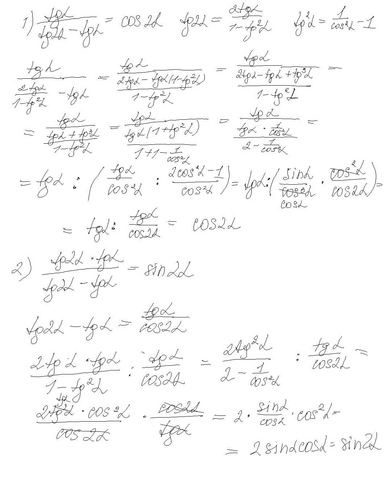 1) tgα/(tg2α - tgα) = cos2α   tg2α = 2tgα/(1-tg²α)   tg²α = 1/cos²α - 1
tgα/(2tgα/(1-tg²α) - tgα) = tgα/((2tgα - tgα(1-tg²α))/(1-tg²α)) = tgα/((2tgα - tgα + tg³α)/(1-tg²α)) =
= tgα/((tgα + tg³α)/(1-tg²α)) = tgα/(tgα(1+tg²α)/(1+1-1/cos²α)) = tgα/((tgα · 1/cos²α)/(2 - 1/cos²α)) =
= tgα : (tgα/cos²α : (2cos²α-1)/cos²α) = tgα : (sinα/(cos²α cosα) · cos²α/cos2α) =
= tgα : tgα/cos2α = cos2α
2) (tg2α · tgα)/(tg2α - tgα) = sin2α
tg2α - tgα = tgα/cos2α
(2tgα · tgα)/(1-tg²α) : tgα/cos2α = 2tg²α/(2 - 1/cos²α) : tgα/cos2α =
(2tg²α · cos²α)/cos2α · cos2α/tgα = 2 · sinα/cosα · cos²α =
= 2sinα cosα = sin2α